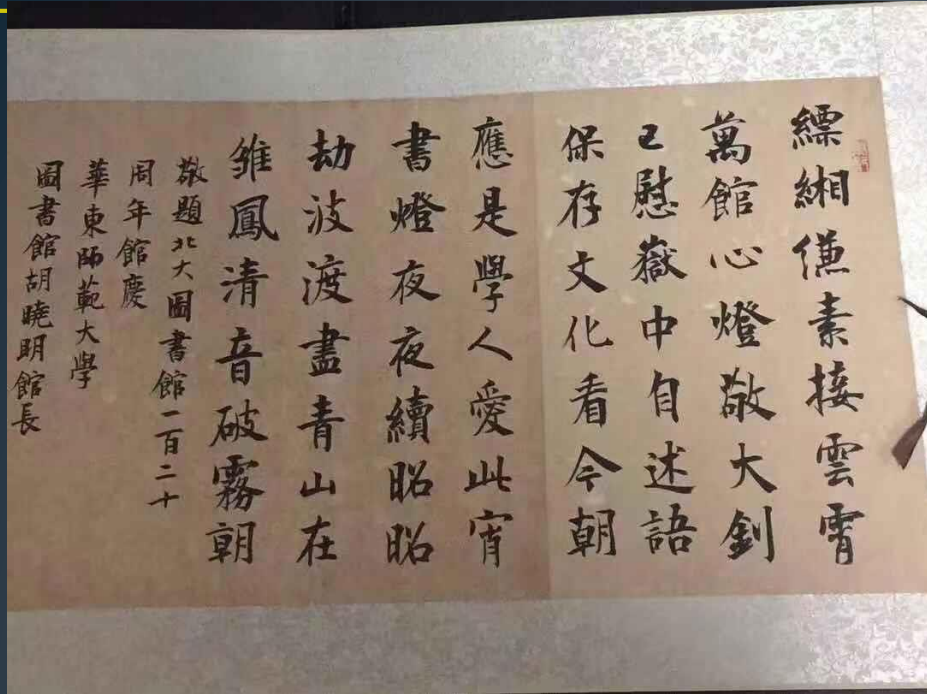 縹緗縑素接雲霄
萬館心燈敬大釗
已慰嶽中自述語
保存文化看今朝
應是學人愛此宵
書燈夜夜續昭昭
劫波渡盡青山在
雏鳳清音破霧朝
敬題北大圖書館一百二十
周年館慶
華東師範大學
圖書館胡曉明館長